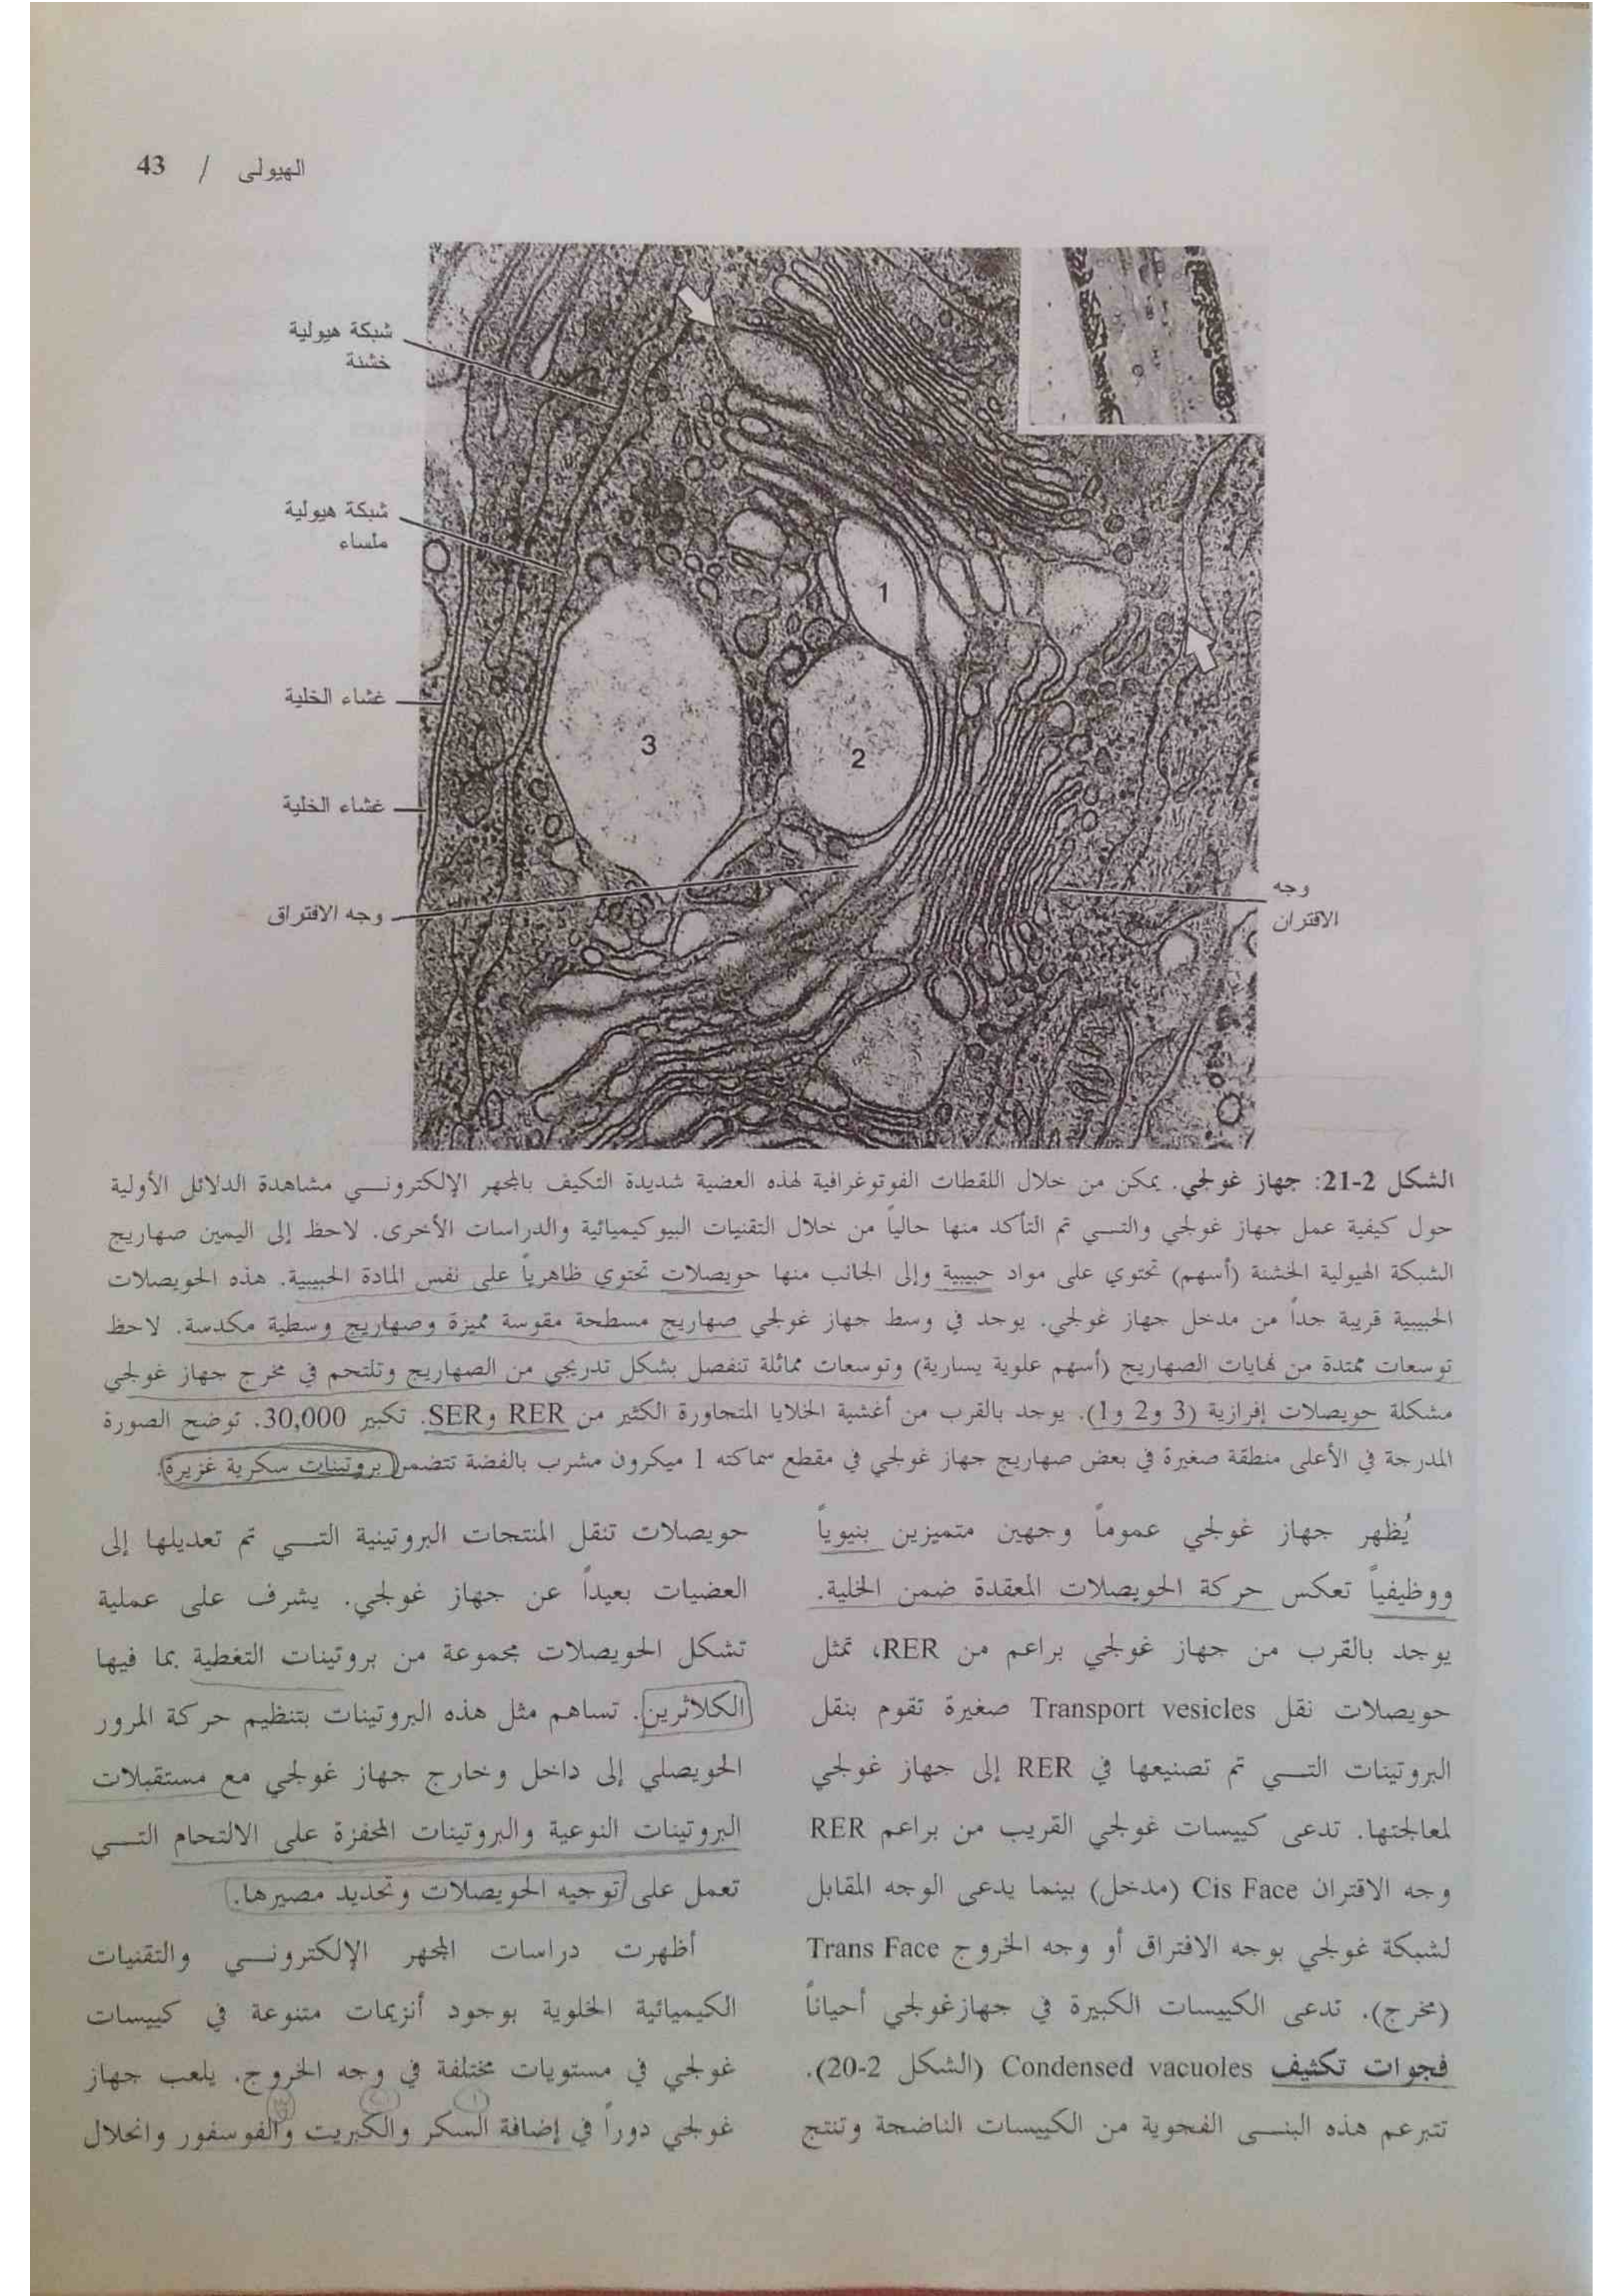 الهيولى / 43
شبكة هيولية
خشنة
شبكة هيولية
ملساء
غشاء الخلية
غشاء الخلية
وجه الافتراق
وجه
الاقتران
1
2
3
الشكل 2-21: جهاز غولجي. يمكن من خلال اللقطات الفوتوغرافية لهذه العضية شديدة التكيف بالمجهر الإلكتروني مشاهدة الدلائل الأولية
حول كيفية عمل جهاز غولجي والتي تم التأكد منها حالياً من خلال التقنيات البيوكيميائية والدراسات الأخرى. لاحظ إلى اليمين صهاريج
الشبكة الهيولية الخشنة (أسهم) تحتوي على مواد حبيبية وإلى الجانب منها حويصلات تحتوي ظاهرياً على نفس المادة الحبيبية. هذه الحويصلات
الحبيبية قريبة جداً من مدخل جهاز غولجي. يوجد في وسط جهاز غولجي صهاريج مسطحة مقوسة مميزة وصهاريج وسطية مكدسة. لاحظ
توسعات ممتدة من نهايات الصهاريج (أسهم علوية يسارية) وتوسعات مماثلة تنفصل بشكل تدريجي من الصهاريج وتلتحم في مخرج جهاز غولجي
مشكلة حويصلات إفرازية (3 و2 و1). يوجد بالقرب من أغشية الخلايا المتجاورة الكثير من RER وSER. تكبير 30,000. توضح الصورة
المدرجة في الأعلى منطقة صغيرة في بعض صهاريج جهاز غولجي في مقطع سماكته 1 ميكرون مشرب بالفضة تتضمن بروتينات سكرية غزيرة.
يُظهر جهاز غولجي عموماً وجهين متميزين بنيوياً
ووظيفياً تعكس حركة الحويصلات المعقدة ضمن الخلية.
يوجد بالقرب من جهاز غولجي براعم من RER، تمثل
حويصلات نقل Transport vesicles صغيرة تقوم بنقل
البروتينات التي تم تصنيعها في RER إلى جهاز غولجي
لمعالجتها. تدعى كييسات غولجي القريب من براعم RER
وجه الاقتران Cis Face (مدخل) بينما يدعى الوجه المقابل
لشبكة غولجي بوجه الافتراق أو وجه الخروج Trans Face
(مخرج). تدعى الكييسات الكبيرة في جهازغولجي أحياناً
فجوات تكثيف Condensed vacuoles (الشكل 2-20).
تتبرعم هذه البنى الفجوية من الكييسات الناضجة وتنتج
حويصلات تنقل المنتجات البروتينية التي تم تعديلها إلى
العضيات بعيداً عن جهاز غولجي. يشرف على عملية
تشكل الحويصلات مجموعة من بروتينات التغطية بما فيها
الكلاثرين. تساهم مثل هذه البروتينات بتنظيم حركة المرور
الحويصلي إلى داخل وخارج جهاز غولجي مع مستقبلات
البروتينات النوعية والبروتينات المحفزة على الالتحام التي
تعمل على توجيه الحويصلات وتحديد مصيرها.
أظهرت دراسات المجهر الإلكتروني والتقنيات
الكيميائية الخلوية بوجود أنزيمات متنوعة في كييسات
غولجي في مستويات مختلفة في وجه الخروج. يلعب جهاز
غولجي دوراً في إضافة السكر والكبريت والفوسفور وانحلال